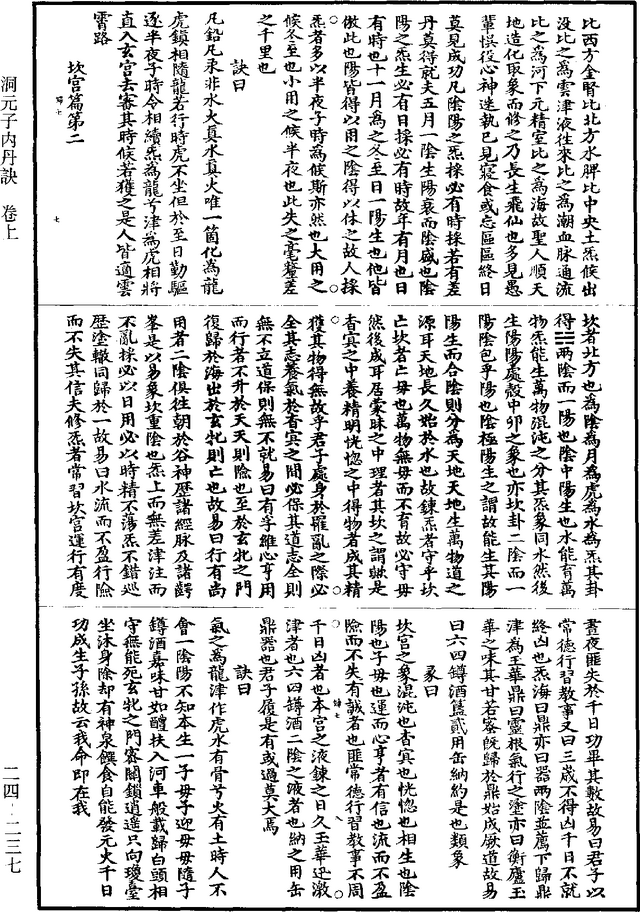 洞元子內丹訣　卷上
二四·二三七
比西方金腎比北方水脾比中央土炁候出
沒比之為雲津液往來比之為潮血脉通流
比之為河下元精室比之為海故聖人順天
地造化取象而修之乃長生飛仙也多見愚
輩悞役心神迷執已見寢食或忘區區終日
莫見成功凡陰陽之炁採必有時採若有差
丹莫得就夫五月一陰生陽衰而陰盛也陰
陽之炁生必有日採必有時故年有月也日
有時也十一月為之冬至日一陽生也他皆
倣此也陽皆得以用之陰得以休之故人採
炁者多以半夜子時為候斯亦然也大用之
候冬至也小用之候半夜也此失之毫釐差
之千里也
訣曰
凡鉛凡汞非水火真水真火唯一箇化為龍
虎鎮相隨龍若行時虎不坐但於至日勤驅
逐半夜子時令相續炁為龍兮津為虎相將
直入玄宮去審其時候若獲之是人皆適雲
霄路
坎宮篇第二
坎者北方也為陰為月為虎為水為炁其卦
得☵兩陰而一陽也陰中陽生也水能育萬
物炁能生萬物混沌之分其炁象同水然後
生陽陽處殼中卯之象也亦坎卦二陰而一
陽陰包乎陽也陰極陽生之謂故能生其陽
陽生而合陰則分為天地天地生萬物道之
源耳天地長久始於水也故鍊炁者守乎坎
亡坎者亡母也萬物無母而不育故必守母
然後成耳居蒙昧之中理者其坎之謂歟是
杳冥之中養精明恍惚之中得物者成其精
獲其物得無故乎君子處身於羅亂之際必
全其志養氣於杳冥之間必保其道志全則
無不立道保則無不就易曰有孚維心亨用
而行者不升於天天則險也至於玄牝之門
復歸於海出於玄牝則亡也故易曰行有尚
用者二陰俱往朝於谷神歷諸經脉及諸竅
峯是以易象坎重陰也炁上而無差津注而
不亂採必以日用必以時精不蕩炁不錯巡
歷塗轍同歸於一故易曰水流而不盈行險
而不失其信夫修炁者常習坎宮運行有度
晝夜匪失於千日功畢其數故易曰君子以
常德行習教事又曰三歲不得凶千日不就
終凶也炁海曰鼎亦曰器兩陰並薦下歸鼎
津為玉華鼎曰靈根氣行之塗亦曰衡廬玉
華之味其甘若蜜旣歸於鼎始成厥道故易
曰六四鐏酒簋貳用缶納約是也類象
彖曰
坎宮之象混沌也杳冥也恍惚也相生也陰
陽也子母也運而心亨者有信也流而不盈
險而不失有誠者也匪常德行習教事不周
千日凶者也本宮之液鍊之日久玉華迅激
津者也六四鐏酒二陰之液者也納之用缶
鼎器也君子履是有或過莫大焉
訣曰
氣之為龍津作虎水有骨兮火有土時人不
會一陰陽不知本生一子母子迎母母隨子
鐏酒嘉味甘如醴扶入河車般載歸白頭相
守無能死玄牝之門密關鎖逍遙只向瓊臺
坐沐身除却有神泉饌食自能發元火千日
功成生子孫故云我命即在我